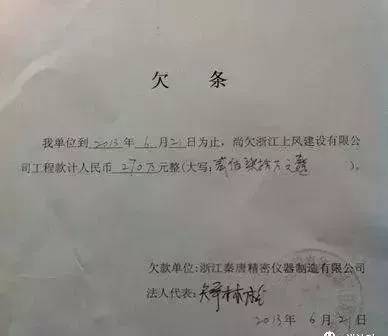 欠 条
我单位到2013年6月21日为止,尚欠浙江上风建设有限公
司工程款计人民币270万元整(大写:贰佰柒拾万元整)。
欠款单位:浙江秦唐精密仪器制造有限公司
法人代表:
2013年6月21